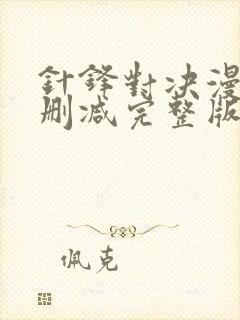 針鋒對决漫
删减完整版
佩克